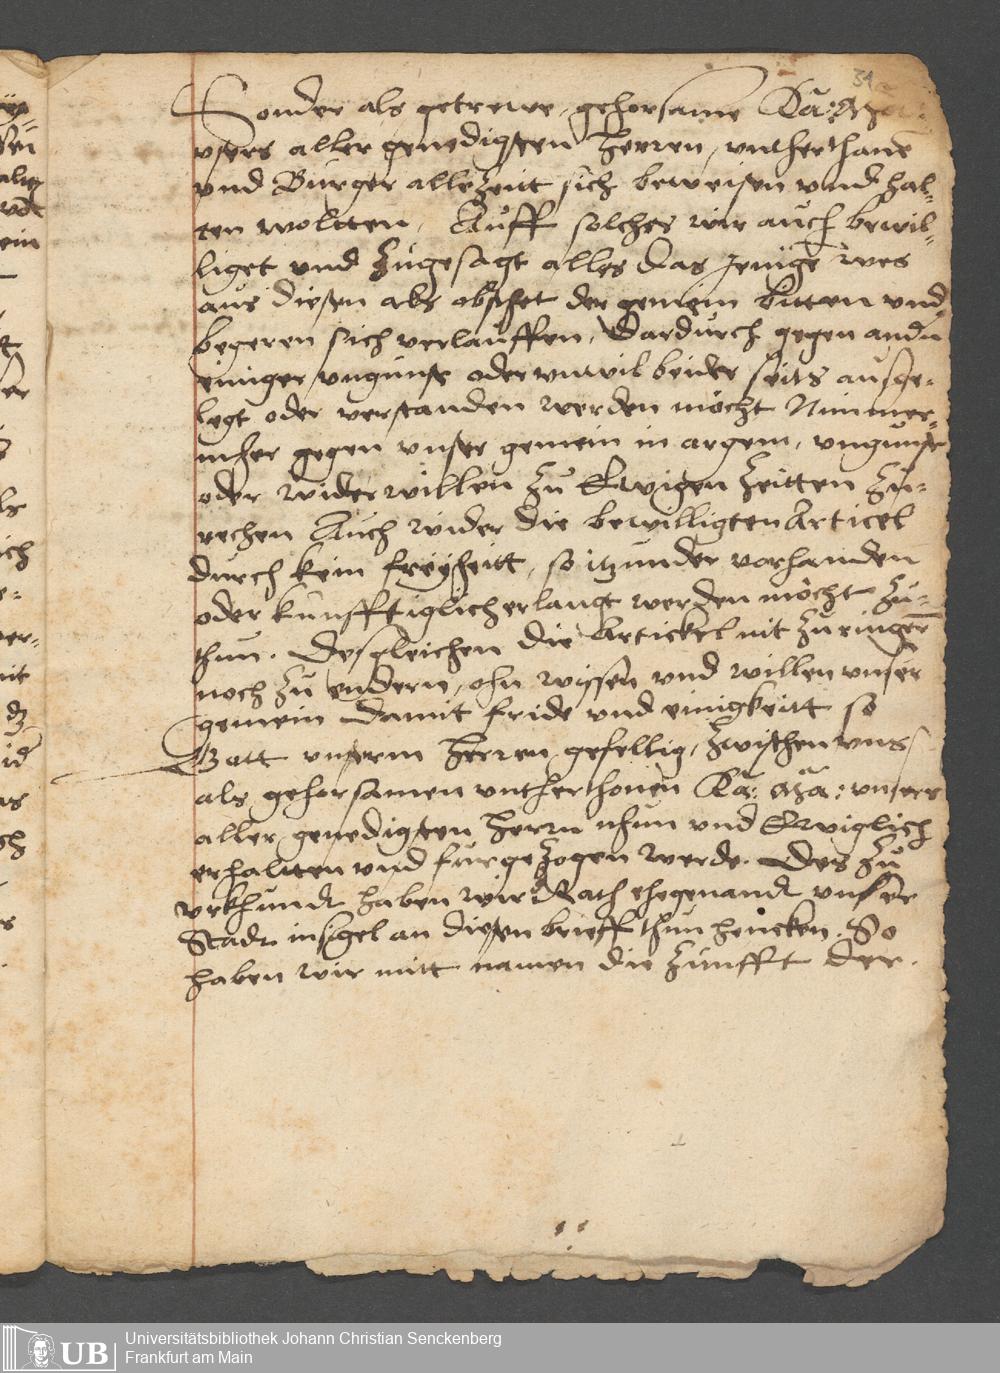 31
Sonder als getrewe, gehorsame Kå: Ma
vnsers aller genedigsten Herren, vntherthane
vnd Bürger allezeitt sich beweisen vnd hal=
ten woltten, Auff solches wir auch bewil=
liget vnd zugesagt alles das Jenige wes
aus diesen der gemein bitten vnd
begeren sich verlauffen, Dardurch gegen
einiger vngunst oder vnwil beider seits ausge=
legt oder verstanden werden möcht Nimmer=
mher gegen vnser gemein in argem, vngunst
oder widerwillen zu Ewigen Zeitten zu=
rechen Auch wider die bewilligten Articel
durch kein freyheitt, so itzunder vorhanden
oder kunfftiglich erlangt werden möcht zu=
thun. Desgleichen die Artickel nit zuringern
noch zu endern, ohn wyssen vnd willen vnser
gemein Damit fride vnd einigkeitt so
Gott vnserm Herren gefellig, zwischen vns
als gehorsamen vntherthonen Kå: Må: vnsers
aller genedigsten Herrn nhun vnd Ewiglich
erhaltten vnd furgezogen werde. Des zu
vrkhundt haben wir Rath ehegenandt vnser
Stadt insigel an diesen brieff thun hencken. So
haben wir mitt namen die Zunfft der.
UB
Universitätsbibliothek Johann Christian Senckenberg
Frankfurt am Main